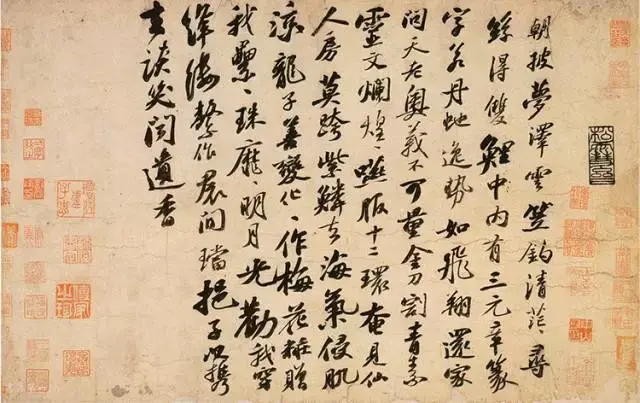 朝披夢澤雲笠釣清茫〻尋
絲得雙鯉中內有三元章篆
字若丹虵逸勢如飛翔還家
問天老奧義不可量金刀割青素
靈文爛煌〻嚥服十二環奄見仙
人房莫跨紫鱗去海氣侵肌
涼龍子善變化〻作梅花粧贈
我纍〻珠靡〻明月光勸我穿
絳縷繫作裾間璫挹子以携
去談笑聞遺香